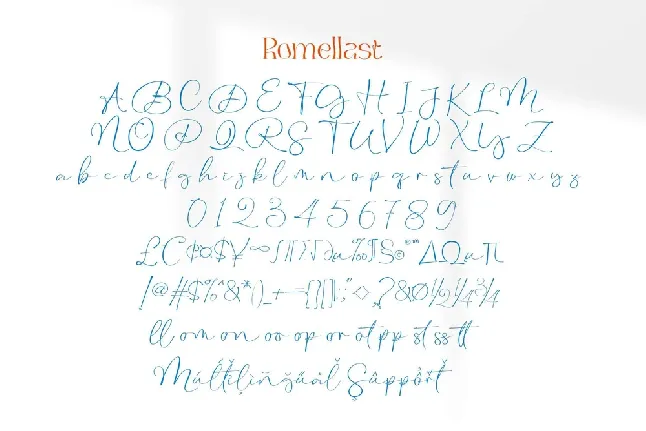 Romellast
A B C D E F G H I J K L M
N O P Q R S T U V W X Y Z
a b c d e f g h i j k l m n o p q r s t u v w x y z
0 1 2 3 4 5 6 7 8 9
£ ¢ ¤ $ ¥ ∞ ∫ ∏ √ ∂ µ ‰ ¶ § © ® ™ Δ Ω µ π
! @ # $ % ^ & * ( ) _ + - = { } [ ] : ; " < > , ? & Ø ½ ¼ ¾
ll om on oo op or ot pp st ss tt
Múltilingual Support